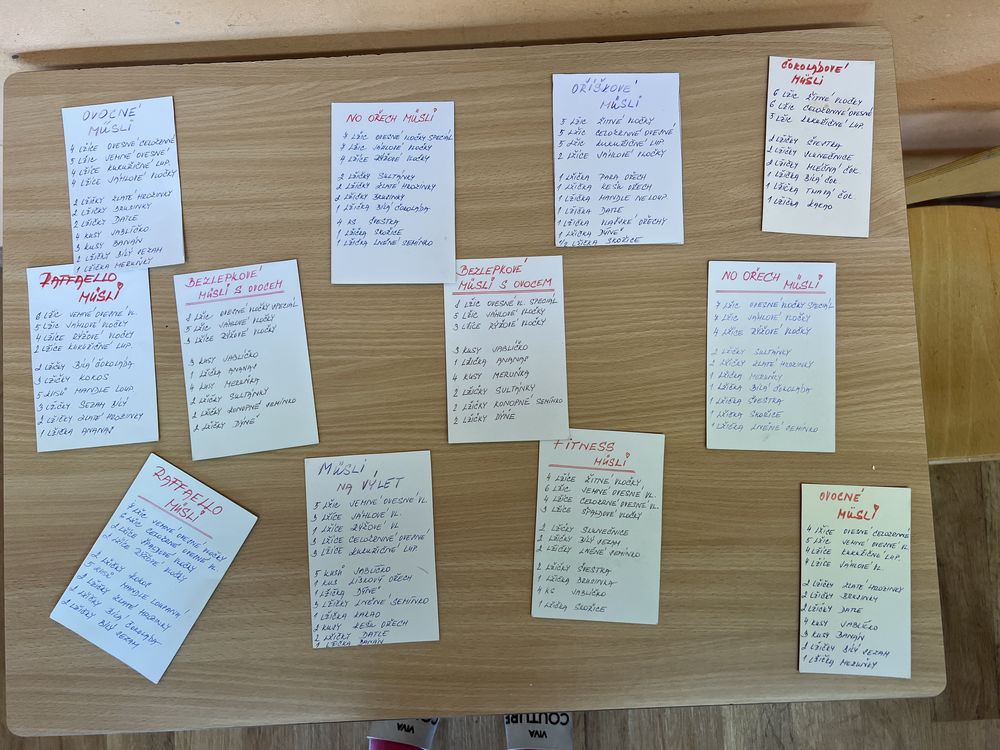 OVOCNÉ
MÜSLI
4 LŽÍCE OVESNÉ CELOZRNNÉ
5 LŽIC JEMNÉ OVESNÉ
4 LŽÍCE KUKUŘIČNÉ LUP.
4 LŽÍCE JÁHLOVÉ VLOČKY
2 LŽIČKY ZLATÉ HROZINKY
2 LŽIČKY BRUSINKY
2 LŽIČKY DATLE
4 KUSY JABLÍČKO
3 KUSY BANÁN
2 LŽIČKY BÍLÝ SEZAM
1 LŽIČKA MERUŇKY
NO OŘECH MÜSLI
7 LŽIC OVESNÉ VLOČKY SPECIÁL
7 LŽIC JÁHLOVÉ VLOČKY
4 LŽÍCE RÝŽOVÉ VLOČKY
2 LŽIČKY SULTÁNKY
2 LŽIČKY ZLATÉ HROZINKY
2 LŽIČKY BRUSINKY
1 LŽIČKA BÍLÁ ČOKOLÁDA
4 KS ŠVESTKA
1 LŽIČKA SKOŘICE
1 LŽIČKA LNĚNÉ SEMÍNKO
OŘÍŠKOVÉ
MÜSLI
5 LŽIC ŽITNÉ VLOČKY
5 LŽIC CELOZRNNÉ OVESNÉ
5 LŽIC KUKUŘIČNÉ LUP.
2 LŽÍCE JÁHLOVÉ VLOČKY
1 LŽIČKA PARA OŘECH
1 LŽIČKA KEŠU OŘECH
1 LŽIČKA MANDLE NELOUP.
1 LŽIČKA DATLE
1 LŽIČKA VLAŠSKÉ OŘECHY
1 LŽIČKA DÝNĚ
1/2 LŽIČKY SKOŘICE
ČOKOLÁDOVÉ
MÜSLI
6 LŽIC ŽITNÉ VLOČKY
6 LŽIC CELOZRNNÉ OVESNÉ
3 LŽÍCE KUKUŘIČNÉ LUP.
2 LŽIČKY ŠVESTKA
2 LŽIČKY SLUNEČNICE
2 LŽIČKY MLÉČNÁ ČOK.
1 LŽIČKA BÍLÁ ČOK.
1 LŽIČKA TMAVÁ ČOK.
1 LŽIČKA KAKAO
RAFFAELLO
MÜSLI
6 LŽIC JEMNÉ OVESNÉ VL.
5 LŽIC JÁHLOVÉ VLOČKY
4 LŽÍCE RÝŽOVÉ VLOČKY
2 LŽÍCE KUKUŘIČNÉ LUP.
2 LŽIČKY BÍLÁ ČOKOLÁDA
3 LŽIČKY KOKOS
5 KUSŮ MANDLE LOUP.
3 LŽIČKY SEZAM BÍLÝ
2 LŽIČKY ZLATÉ HROZINKY
1 LŽIČKA ANANAS
BEZLEPKOVÉ
MÜSLI S OVOCEM
8 LŽIC OVESNÉ VLOČKY SPECIÁL
5 LŽIC JÁHLOVÉ VLOČKY
3 LŽÍCE RÝŽOVÉ VLOČKY
3 KUSY JABLÍČKO
1 LŽIČKA ANANAS
4 KUSY MERUŇKA
2 LŽIČKY SULTÁNKY
2 LŽIČKY KONOPNÉ SEMÍNKO
2 LŽIČKY DÝNĚ
BEZLEPKOVÉ
MÜSLI S OVOCEM
8 LŽIC OVESNÉ VL. SPECIÁL
5 LŽIC JÁHLOVÉ VLOČKY
3 LŽÍCE RÝŽOVÉ VLOČKY
3 KUSY JABLÍČKO
1 LŽIČKA ANANAS
4 KUSY MERUŇKA
2 LŽIČKY SULTÁNKY
2 LŽIČKY KONOPNÉ SEMÍNKO
2 LŽIČKY DÝNĚ
NO OŘECH MÜSLI
7 LŽIC OVESNÉ VLOČKY SPECIÁL
7 LŽIC JÁHLOVÉ VLOČKY
4 LŽÍCE RÝŽOVÉ VLOČKY
2 LŽIČKY SULTÁNKY
2 LŽIČKY ZLATÉ HROZINKY
1 LŽIČKA MERUŇKY
1 LŽIČKA BÍLÁ ČOKOLÁDA
1 LŽIČKA ŠVESTKA
1 LŽIČKA SKOŘICE
1 LŽIČKA LNĚNÉ SEMÍNKO
RAFFAELLO
MÜSLI
7 LŽIC JEMNÉ OVESNÉ VLOČKY
6 LŽIC CELOZRNNÉ OVESNÉ VL.
2 LŽÍCE ŠPALDOVÉ VLOČKY
2 LŽÍCE RÝŽOVÉ VLOČKY
2 LŽIČKY KOKOS
5 KUSŮ MANDLE LOUPANÁ
2 LŽIČKY ZLATÉ HROZINKY
2 LŽIČKY BÍLÁ ČOKOLÁDA
2 LŽIČKY BÍLÝ SEZAM
MÜSLI
NA VÝLET
5 LŽIC JEMNÉ OVESNÉ VL.
3 LŽÍCE JÁHLOVÉ VL.
1 LŽÍCE RÝŽOVÉ VL.
3 LŽÍCE CELOZRNNÉ OVESNÉ
3 LŽÍCE KUKUŘIČNÉ LUP.
5 KUSŮ JABLÍČKO
1 KUS LÍSKOVÝ OŘECH
1 LŽIČKA DÝNĚ
3 LŽIČKY LNĚNÉ SEMÍNKO
1 LŽIČKA KAKAO
2 KUSY KEŠU OŘECH
2 LŽIČKY DATLE
1 LŽIČKA BANÁN
FITNESS
MÜSLI
4 LŽÍCE ŽITNÉ VLOČKY
6 LŽIC JEMNÉ OVESNÉ VL.
4 LŽÍCE CELOZRNNÉ OVESNÉ VL.
3 LŽÍCE ŠPALDOVÉ VLOČKY
2 LŽIČKY SLUNEČNICE
2 LŽIČKY BÍLÝ SEZAM
2 LŽIČKY LNĚNÉ SEMÍNKO
2 LŽIČKY ŠVESTKA
1 LŽIČKA BRUSINKA
4 KS JABLÍČKO
1 LŽIČKA SKOŘICE
OVOCNÉ
MÜSLI
4 LŽÍCE OVESNÉ CELOZRNNÉ
5 LŽIC JEMNÉ OVESNÉ VL.
4 LŽÍCE KUKUŘIČNÉ LUP.
4 LŽÍCE JÁHLOVÉ VL.
2 LŽIČKY ZLATÉ HROZINKY
2 LŽIČKY BRUSINKY
2 LŽIČKY DATLE
4 KUSY JABLÍČKO
3 KUSY BANÁN
2 LŽIČKY BÍLÝ SEZAM
1 LŽIČKA MERUŇKY
VIVA
COUTURE
VIVA
COUTURE